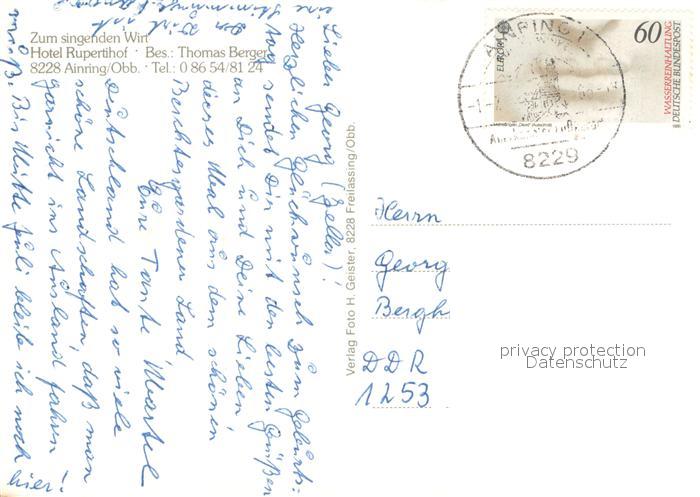 Zum singenden Wirt
Hotel Rupertihof · Bes.: Thomas Berger
8228 Ainring/Obb. · Tel.: 0 86 54/81 24
Lieber Georg (Geller)!
Herzlichen Glückwunsch zum Geburts:
tag sendet Dir mit den besten Grüßen
an Dich und Deine Lieben
dieses Mal aus dem schönen
Berchtesgadener Land
Eure Tante Martel
Deutschland hat so viele
schöne Landschaften, daß man
garnicht ins Ausland fahren
muß. Bis Mitte Juli bleibe ich noch
hier!
Verlag Foto H. Geister · 8228 Freilassing/Obb.
EUROPA
60
WASSERREINHALTUNG
DEUTSCHE BUNDESPOST
AINRING 1
8229
Herrn
Georg
Bergh
DDR
1253
privacy protection
Datenschutz